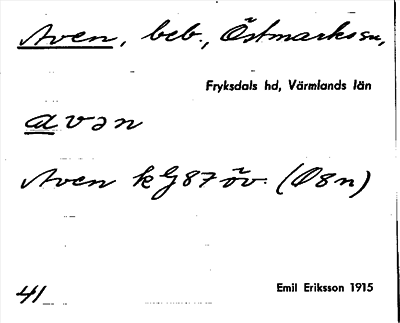 Aven, beb., Östmarks sn,
Fryksdals hd, Värmlands län
avən
Aven kG87 öv. (O8n)
41
Emil Eriksson 1915